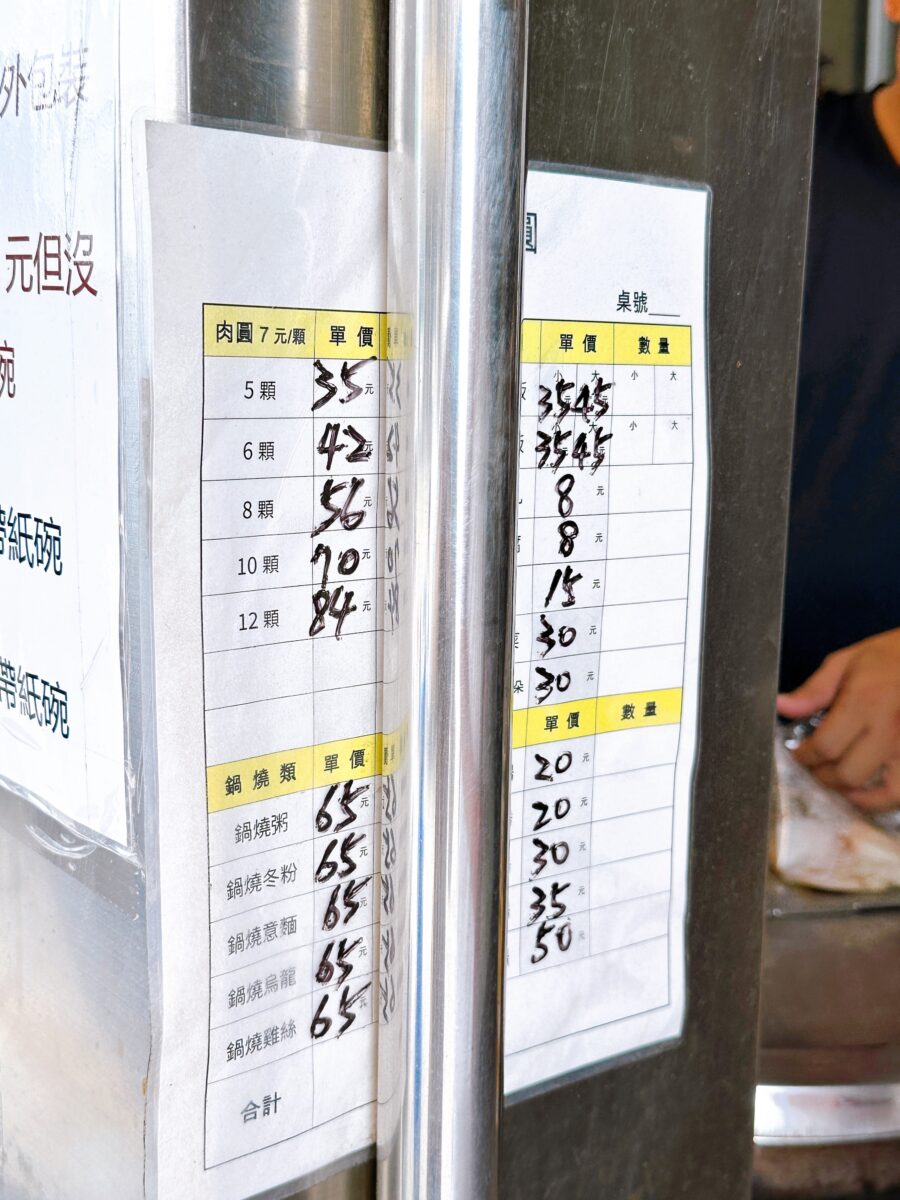 外包裝
元但沒
碗
帶紙碗
帶紙碗
圓
桌號___
肉圓 7 元/顆 單價
5 顆 35元
6 顆 42元
8 顆 56元
10 顆 70元
12 顆 84元
鍋燒類 單價
鍋燒粥 65元
鍋燒冬粉 65元
鍋燒意麵 65元
鍋燒烏龍 65元
鍋燒雞絲 65元
合計
單價 數量
小 大 小 大
35 45
小 大 小 大
35 45
8 元
8 元
15 元
30 元
朵 30 元
單價 數量
20 元
20 元
30 元
35 元
50 元